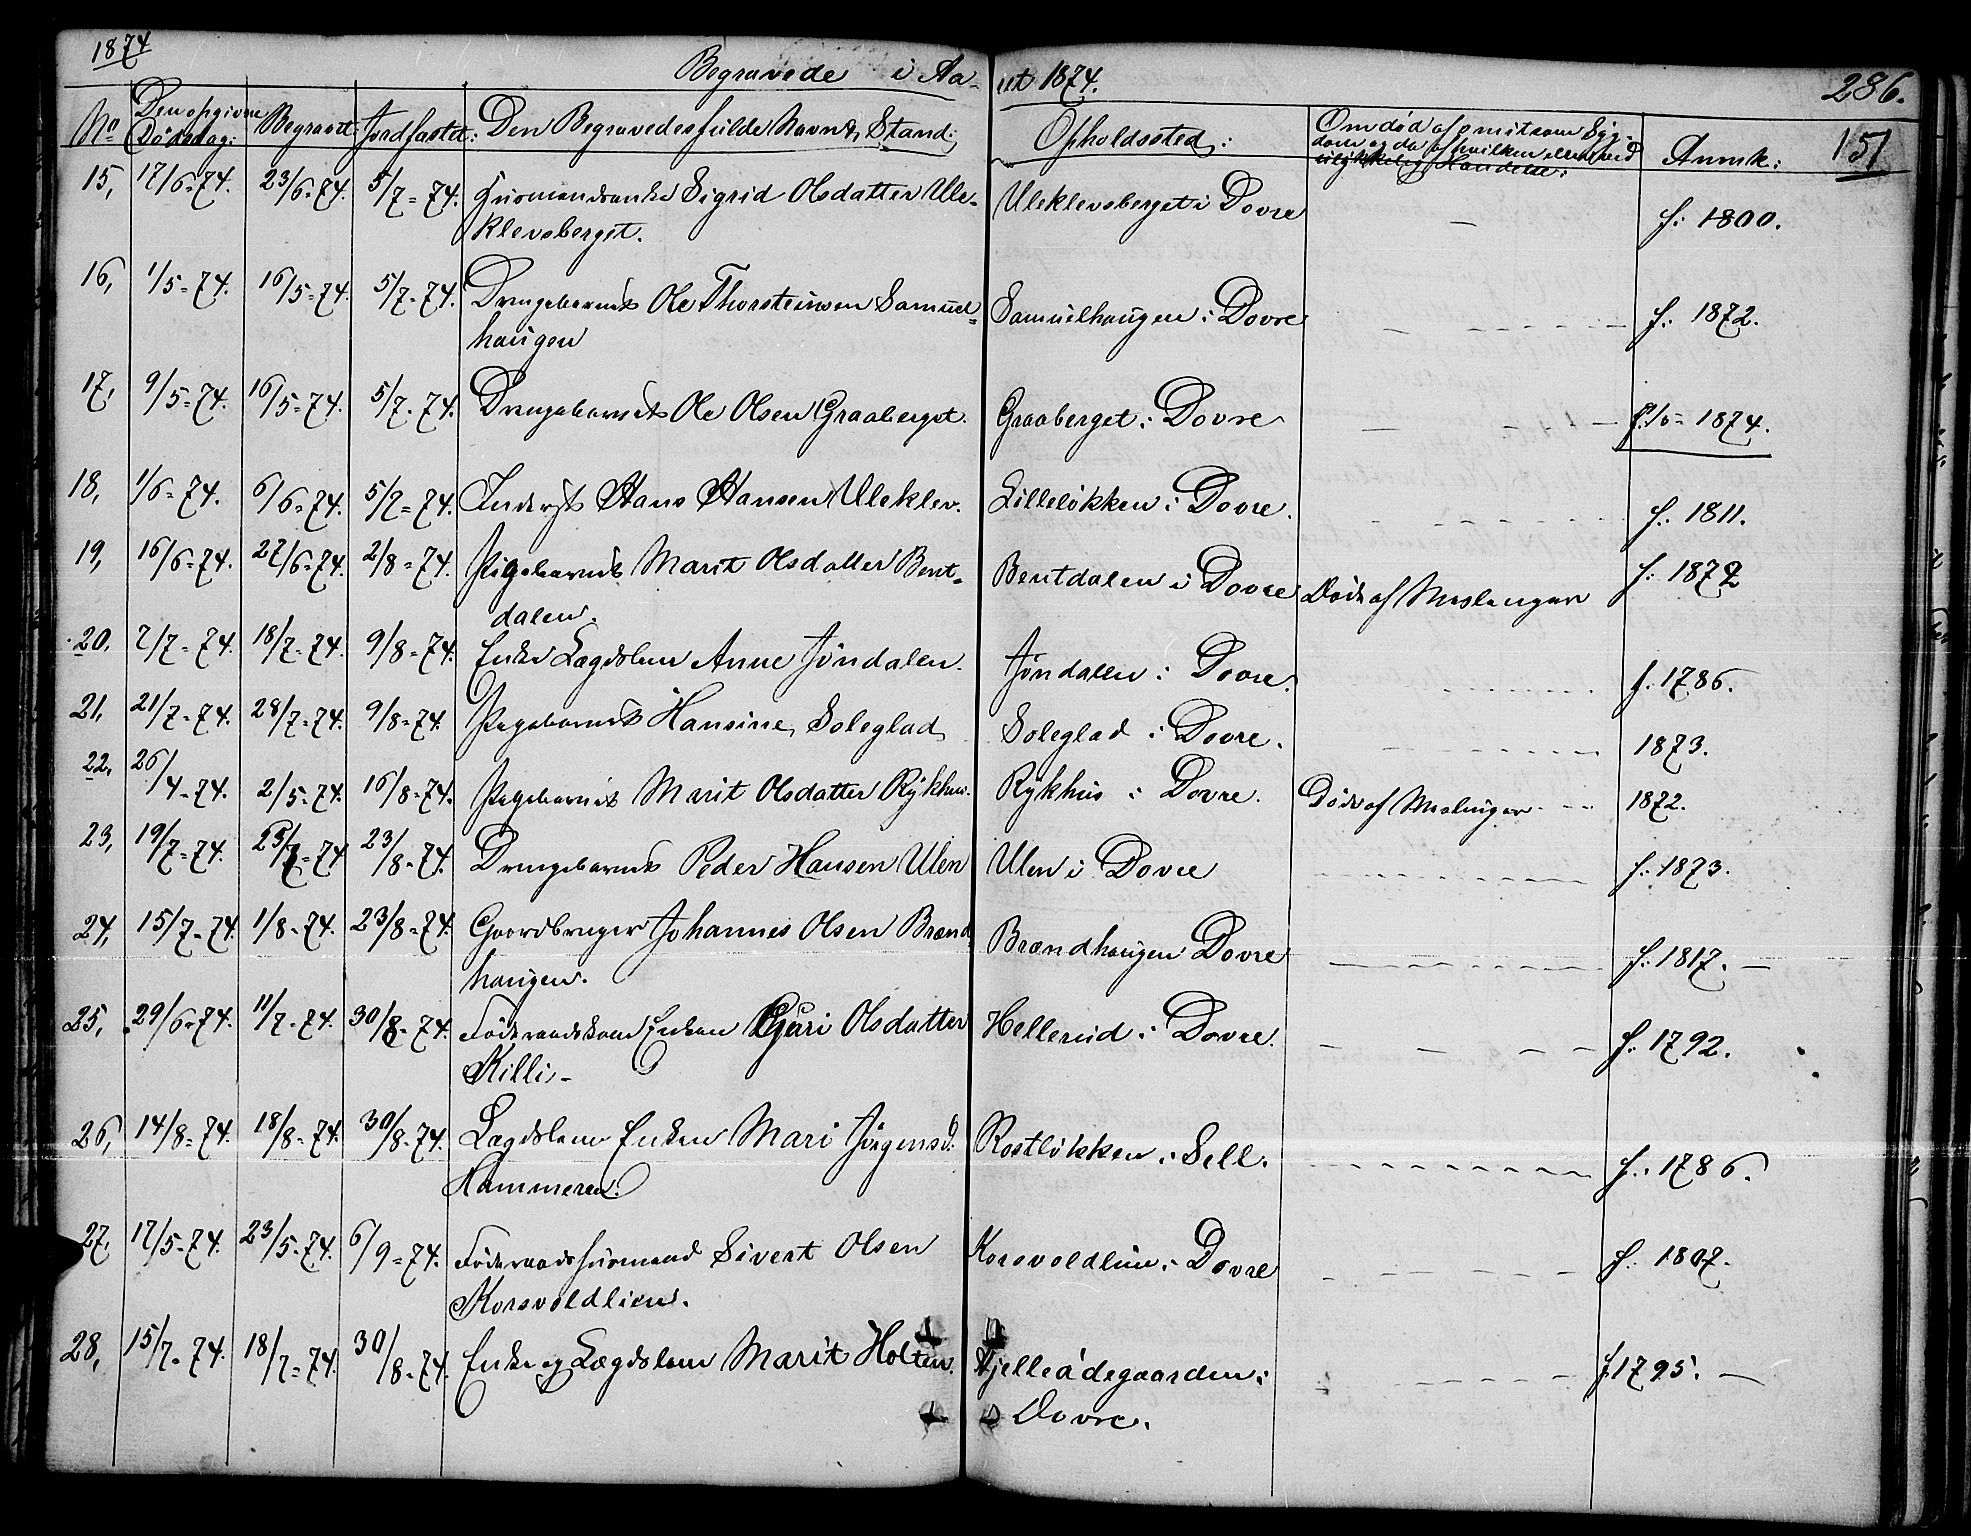 1874
Begravede i Aaret 1874.
286.
151
No Den opgivne Dödsdag: Begravet: Jordfæstet: Den Begravedes fulde Navn & Stand: Opholdssted: Om död af smitsom Syg-
dom og da af hvilken eller ved
ulykkelig Hændelse: Anmk:
15, 17/6-74. 23/6-74. 5/7-74. Huusmandsenke Sigrid Olsdatter Ule- Uleklevsberget i Dovre — f: 1800.
klevsberget.
16, 1/5-74. 16/5-74. 5/7-74. Drengebarnet Ole Thorsteinsen Samuel- Samuelhaugen i Dovre f: 1872.
haugen
17, 9/5-74. 16/5-74. 5/7-74. Drengebarnet Ole Olsen Graaberget. Graaberget i Dovre f. 1/5-1874.
18, 1/6-74. 6/6-74. 5/7-74. Inderst Hans Hansen Uleklev. Lilleløkken i Dovre. f: 1811.
19, 16/6-74. 27/6-74. 2/8-74. Pigebarnet Marit Olsdatter Bent- Bentdalen i Dovre Døde af Meslinger f: 1872
dalen.
20, 7/7-74. 18/7-74. 9/8-74. Enke Lægdslem Anne Jöndalen. Jöndalen i Dovre. f. 1786.
21, 21/7-74. 28/7-74. 9/8-74. Pigebarnet Hansine Soleglad Soleglad i Dovre. 1873.
22, 26/4-74. 2/5-74. 16/8-74. Pigebarnet Marit Olsdatter Rykhus. Rykhus i Dovre. Døde af Meslinger 1872.
23, 19/7-74. 25/7-74 23/8-74. Drengebarnet Peder Hansen Ulen Ulen i Dovre f: 1873.
24, 15/7-74. 1/8-74. 23/8-74. Gaardbruger Johannes Olsen Brænd Brændhaugen Dovre f: 1817. —
haugen.
25, 29/6-74. 11/7-74. 30/8-74. Föderaadskone Enken Guri Olsdatter Hellerud i Dovre. f: 1792.
Killi-
26, 14/8-74. 18/8-74. 30/8-74. Lægdslem Enken Mari Jörgensd. Rostløkken i Sell. f: 1786.
Hammeren.
27, 17/5-74. 23/5-74. 6/9-74. Föderaadshusmand Sivert Olsen Korsvoldlien i Dovre f: 1807.
Korsvoldlien.
28, 15/7-74. 18/7-74. 30/8-74. Enke og Lægdslem Marit Holten. Kjelleådegaarden i f. 1795. —
Dovre.